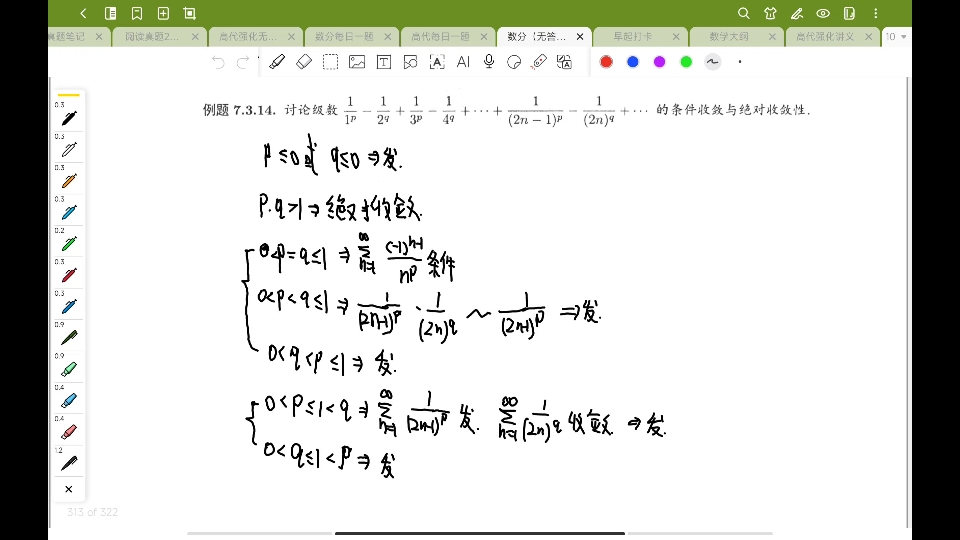 真题笔记 × 阅读真题2... × 高代强化无... × 数分每日一题 × 高代每日一题 × 数分（无答... × 早起打卡 × 数学大纲 × 高代强化讲义 × 10
0.3
0.3
0.3
0.3
0.2
0.3
0.3
0.9
0.9
0.4
0.4
1.2
例题 7.3.14. 讨论级数 1/1^p − 1/2^q + 1/3^p − 1/4^q + ⋯ + 1/(2n−1)^p − 1/(2n)^q + ⋯ 的条件收敛与绝对收敛性.
p≤0或 q≤0 ⇒发.
p.q>1⇒绝对收敛.
0<p=q≤1 ⇒ ∑_{n=1}^∞ (-1)^{n-1}/n^p 条件
0<p<q≤1 ⇒ 1/(2n-1)^p - 1/(2n)^q ~ 1/(2n-1)^p ⇒发.
0<q<p≤1⇒ 发.
0<p≤1<q ⇒ ∑_{n=1}^∞ 1/(2n-1)^p 发. ∑_{n=1}^∞ 1/(2n)^q 收敛 ⇒发.
0<q≤1<p⇒ 发
313 of 322